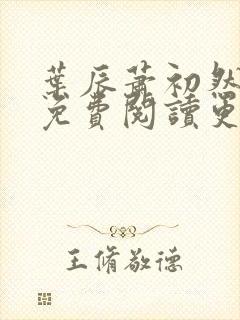 葉辰蕭初然
免費閱讀更
王脩敬德